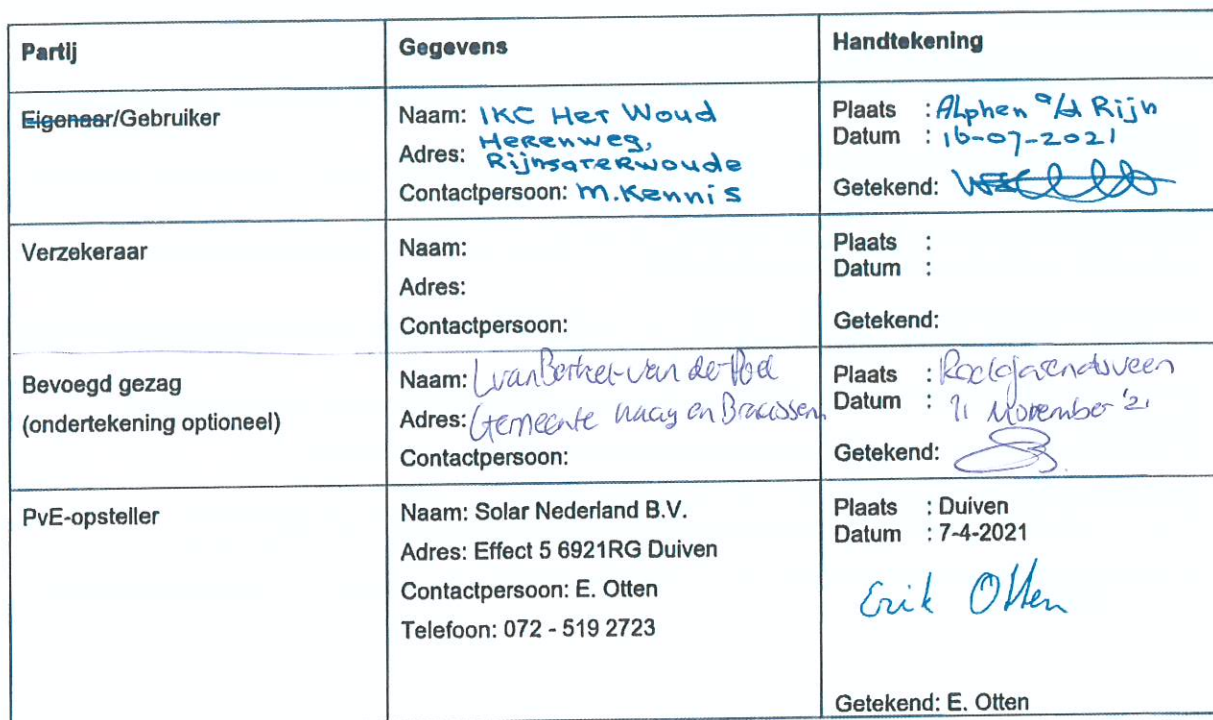 Partij
Gegevens
Handtekening
Eigenaar/Gebruiker
Naam: IKC Het Woud
Adres: Herenweg,
Rijnsaterwoude
Contactpersoon: M. Kennis
Plaats : Alphen a/d Rijn
Datum : 16-07-2021
Getekend:
Verzekeraar
Naam:
Adres:
Contactpersoon:
Plaats :
Datum :
Getekend:
Bevoegd gezag
(ondertekening optioneel)
Naam: L van Berkel-van der Poel
Adres: Gemeente Kaag en Braassem
Contactpersoon:
Plaats : Roelofarendsveen
Datum : 11 November '21
Getekend:
PvE-opsteller
Naam: Solar Nederland B.V.
Adres: Effect 5 6921RG Duiven
Contactpersoon: E. Otten
Telefoon: 072 - 519 2723
Plaats : Duiven
Datum : 7-4-2021
Erik Otten
Getekend: E. Otten